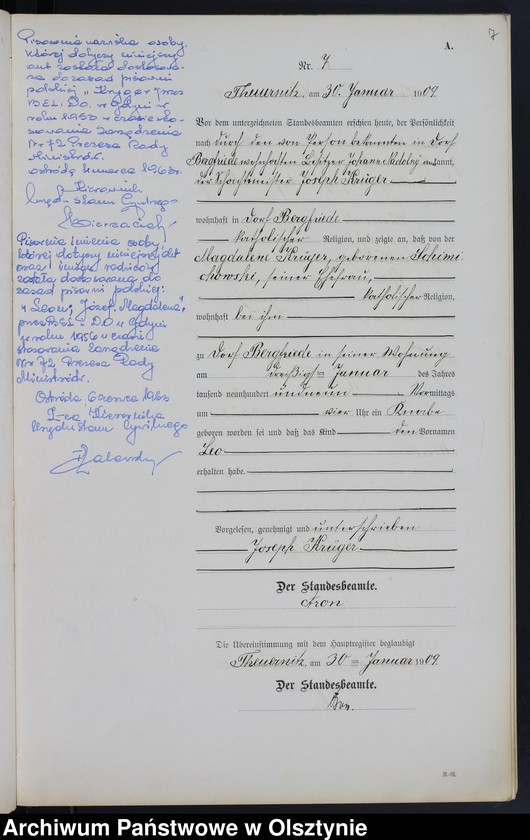 7
A.
Nr. 7
Theuernitz, am 30. Januar 1909
Vor dem unterzeichneten Standesbeamten erschien heute, der Persönlichkeit
nach durch den von Person bekannten in Dorf
Bergfriede wohnhaften Besitzer Johann anerkannt,
der Schachtmeister Joseph Krüger
wohnhaft in Dorf Bergfriede
katholischer Religion, und zeigte an, daß von der
Magdalene Krüger, geborenen Schimi-
chowski, seiner Ehefrau,
katholischer Religion,
wohnhaft bei ihm
zu Dorf Bergfriede in seiner Wohnung
am dreißigsten Januar des Jahres
tausend neunhundert und neun Vormittags
um vier Uhr ein Knabe
geboren worden sei und daß das Kind den Vornamen
Leo
erhalten habe.
Vorgelesen, genehmigt und unterschrieben
Joseph Krüger
Der Standesbeamte.
Aron
Die Übereinstimmung mit dem Hauptregister beglaubigt
Theuernitz, am 30 ten Januar 1909.
Der Standesbeamte.
Aron.
Pisownia nazwiska osoby,
której dotyczy niniejszy
akt została dostosowa-
na do zasad pisowni
polskiej „Kryger" przez
w Gdyni w
roku 1953 w
stosowania Zarządzenia
Nr 72 Prezesa Rady
Ministrów.
Ostróda
Kierownik
Urzędu Stanu Cywilnego
Pisownia imienia osoby,
której dotyczy niniejszy akt
oraz imiona rodziców
została dostosowana do
zasad pisowni polskiej:
„Leon", Józef, Magdalena",
przez w Gdyni
w roku 1956 w
stosowania Zarządzenia
Nr 72 Prezesa Rady
Ministrów.
Ostróda 6 czerwca 1963
Z-ca Kierownika
Urzędu Stanu Cywilnego
Archiwum Państwowe w Olsztynie